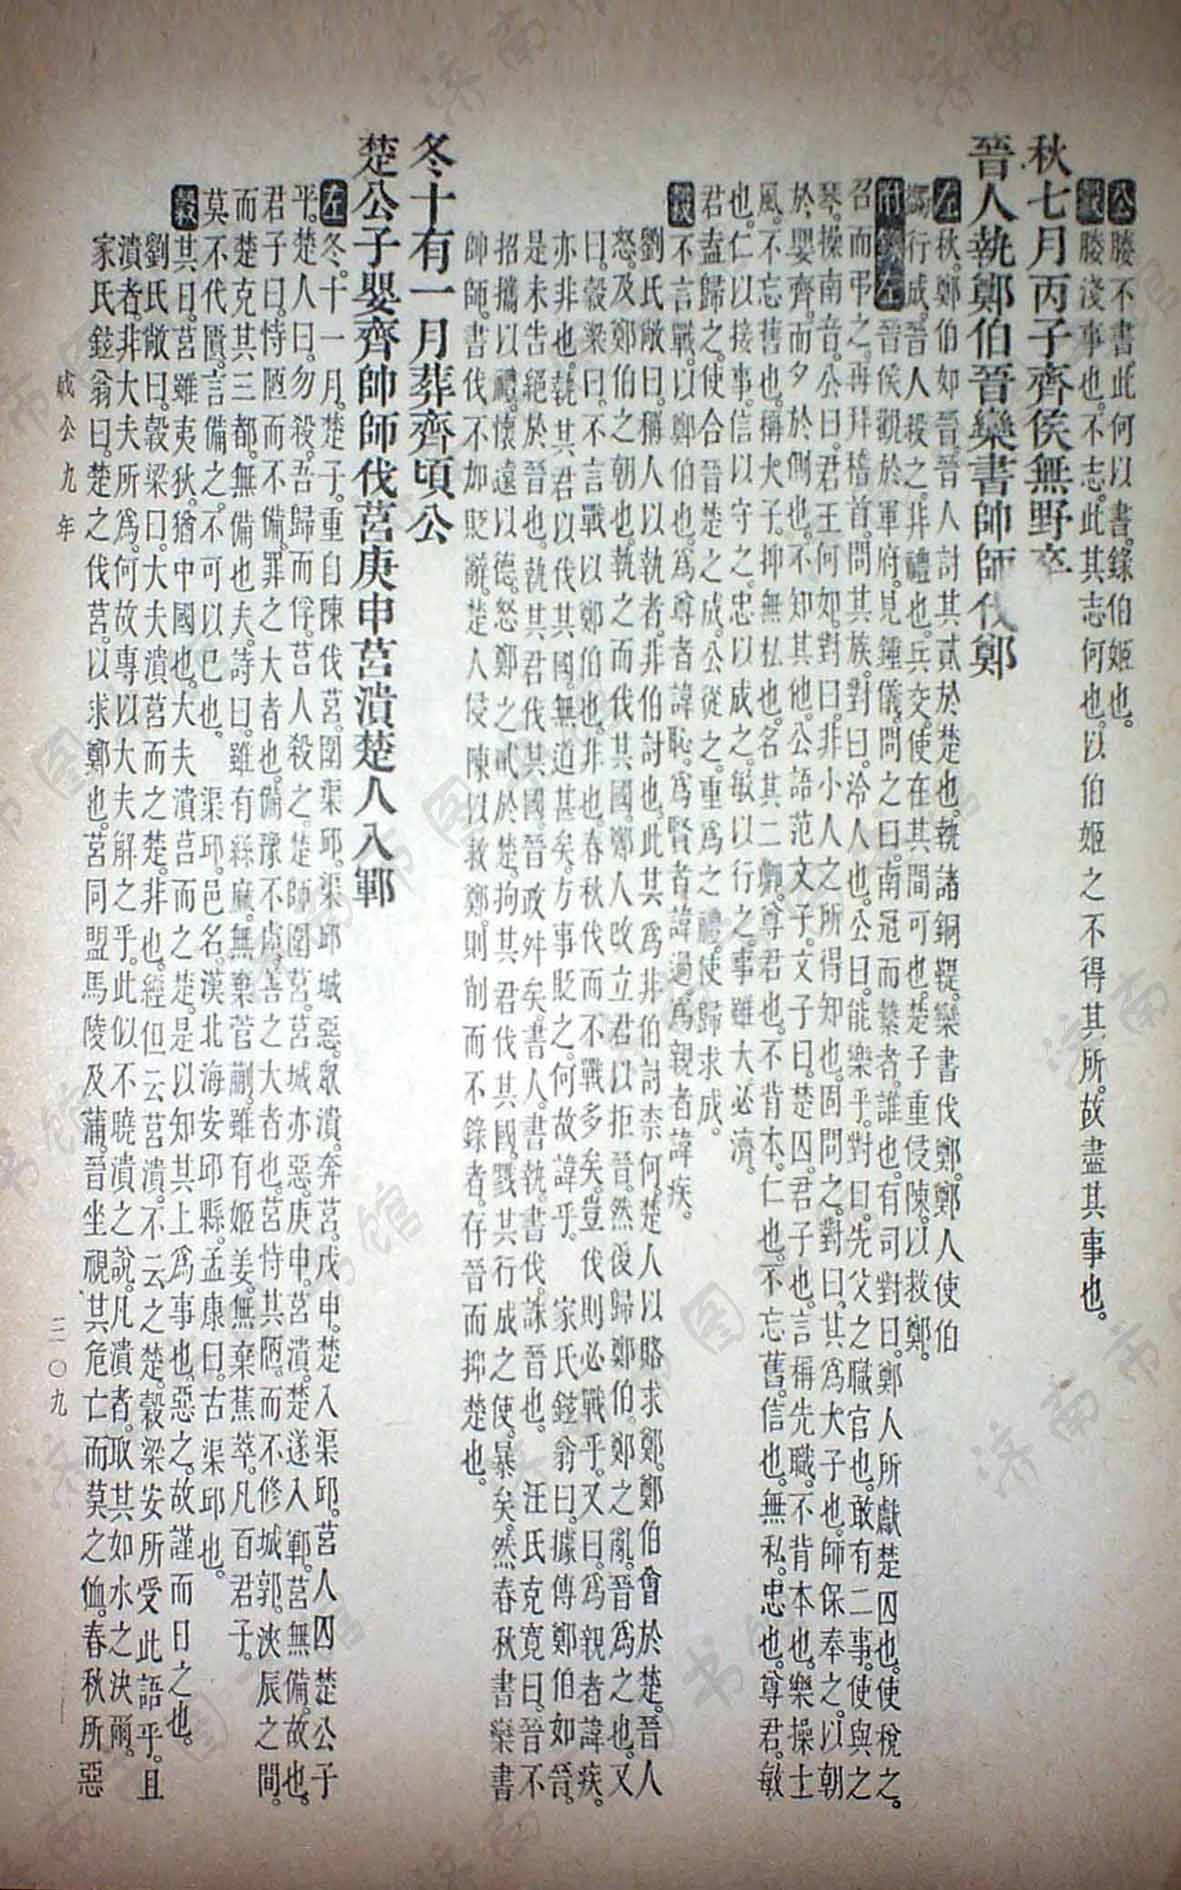 公 媵不書。此何以書。錄伯姬也。
穀 媵淺事也。不志。此其志何也。以伯姬之不得其所。故盡其事也。
秋七月丙子齊侯無野卒
晉人執鄭伯晉欒書帥師伐鄭
左 秋。鄭伯如晉。晉人討其貳於楚也。執諸銅鞮。欒書伐鄭。鄭人使伯
蠲行成。晉人殺之。非禮也。兵交。使在其間可也。楚子重侵陳。以救鄭。
附錄左 晉侯觀於軍府。見鍾儀。問之曰。南冠而縶者。誰也。有司對曰。鄭人所獻楚囚也。使稅之。
召而弔之。再拜稽首。問其族。對曰。泠人也。公曰。能樂乎。對曰。先父之職官也。敢有二事。使與之
琴。操南音。公曰。君王何如。對曰。非小人之所得知也。固問之。對曰。其爲大子也。師保奉之。以朝
於嬰齊。而夕於側也。不知其他。公語范文子。文子曰。楚囚。君子也。言稱先職。不背本也。樂操土
風。不忘舊也。稱大子。抑無私也。名其二卿。尊君也。不背本。仁也。不忘舊。信也。無私。忠也。尊君。敏
也。仁以接事。信以守之。忠以成之。敏以行之。事雖大必濟。
君盍歸之。使合晉楚之成。公從之。重爲之禮。使歸求成。
穀 不言戰。以鄭伯也。爲尊者諱恥。爲賢者諱過。爲親者諱疾。
劉氏敞曰。稱人以執者。非伯討也。此其爲非伯討柰何。楚人以賂求鄭。鄭伯會於楚。晉人
怒。及鄭伯之朝也。執之而伐其國。鄭人改立君以拒晉。然後歸鄭伯。鄭之亂。晉爲之也。又
曰。穀梁曰。不言戰以鄭伯也。非也。春秋伐而不戰多矣。豈伐則必戰乎。又曰。爲親者諱疾。
亦非也。執其君以伐其國。無道甚矣。方事貶之。何故諱乎。 家氏鉉翁曰。據傳鄭伯如晉。
是未告絕於晉也。執其君伐其國。晉政舛矣。書人。書執。書伐。誅晉也。 汪氏克寬曰。晉不
招攜以禮。懷遠以德。怒鄭之貳於楚。拘其君伐其國。戮其行成之使。暴矣。然春秋書欒書
帥師。書伐不加貶辭。楚人侵陳以救鄭。則削而不錄者。存晉而抑楚也。
冬十有一月葬齊頃公
楚公子嬰齊帥師伐莒庚申莒潰楚人入鄆
左 冬。十一月。楚子重自陳伐莒。圍渠邱。渠邱城惡。眾潰。奔莒。戊申。楚入渠邱。莒人囚楚公子
平。楚人曰。勿殺。吾歸而俘。莒人殺之。楚師圍莒。莒城亦惡。庚申。莒潰。楚遂入鄆。莒無備故也。
君子曰。恃陋而不備。罪之大者也。備豫不虞。善之大者也。莒恃其陋。而不修城郭。浹辰之間。
而楚克其三都。無備也夫。詩曰。雖有絲麻。無棄菅蒯。雖有姬姜。無棄蕉萃。凡百君子。
莫不代匱。言備之。不可以已也。 渠邱。邑名。漢北海安邱縣。孟康曰。古渠邱也。
穀 其日。莒雖夷狄。猶中國也。大夫潰莒而之楚。是以知其上爲事也。惡之。故謹而日之也。
劉氏敞曰。穀梁曰。大夫潰莒而之楚。非也。經但云莒潰。不云之楚。穀梁安所受此語乎。且
潰者。非大夫所爲。何故專以大夫解之乎。此似不曉潰之說。凡潰者。取其如水之決爾。
家氏鉉翁曰。楚之伐莒。以求鄭也。莒同盟馬陵及蒲。晉坐視其危亡而莫之恤。春秋所惡
成公九年
三〇九